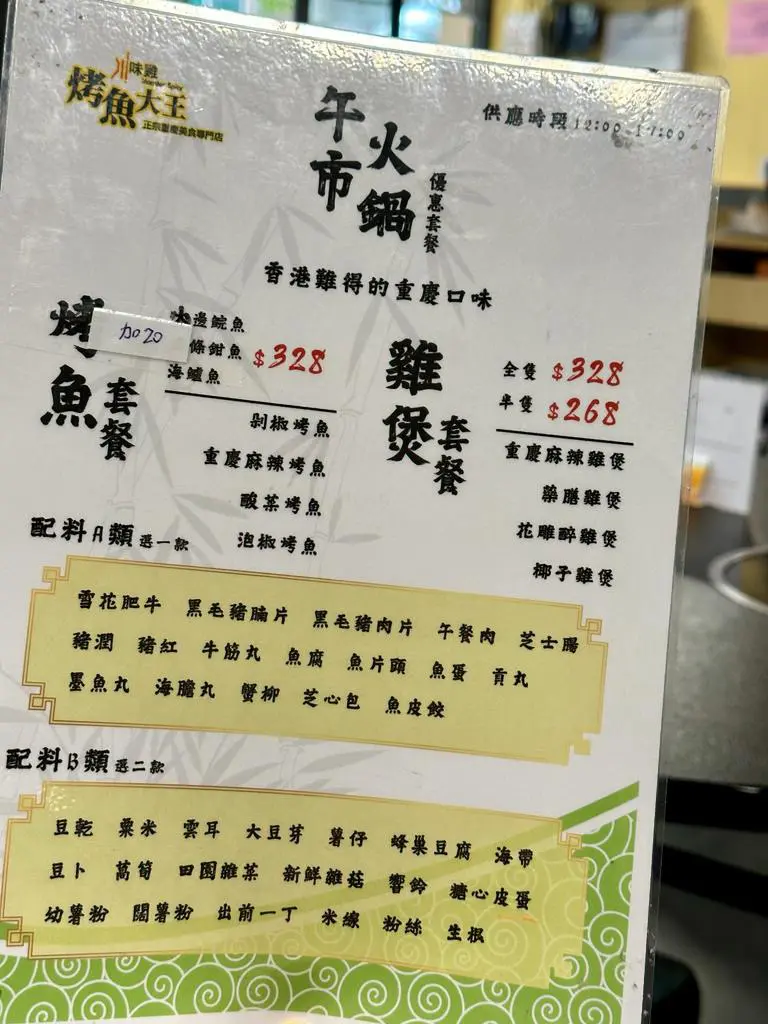 川味雞
烤魚大王
正宗重慶美食專門店
午市
火鍋
優惠套餐
供應時段 12:00-17:00
香港難得的重慶口味
烤魚
套餐
加20
邊鯇魚
條鉗魚
海鱸魚
$328
剁椒烤魚
重慶麻辣烤魚
酸菜烤魚
泡椒烤魚
雞煲
套餐
全隻 $328
半隻 $268
重慶麻辣雞煲
藥膳雞煲
花雕醉雞煲
椰子雞煲
配料A類 選一款
雪花肥牛 黑毛豬腩片 黑毛豬肉片 午餐肉 芝士腸
豬潤 豬紅 牛筋丸 魚腐 魚片頭 魚蛋 貢丸
墨魚丸 海膽丸 蟹柳 芝心包 魚皮餃
配料B類 選二款
豆乾 粟米 雲耳 大豆芽 薯仔 蜂巢豆腐 海帶
豆卜 萵筍 田園雜菜 新鮮雜菇 響鈴 糖心皮蛋
幼薯粉 闊薯粉 出前一丁 米線 粉絲 生根